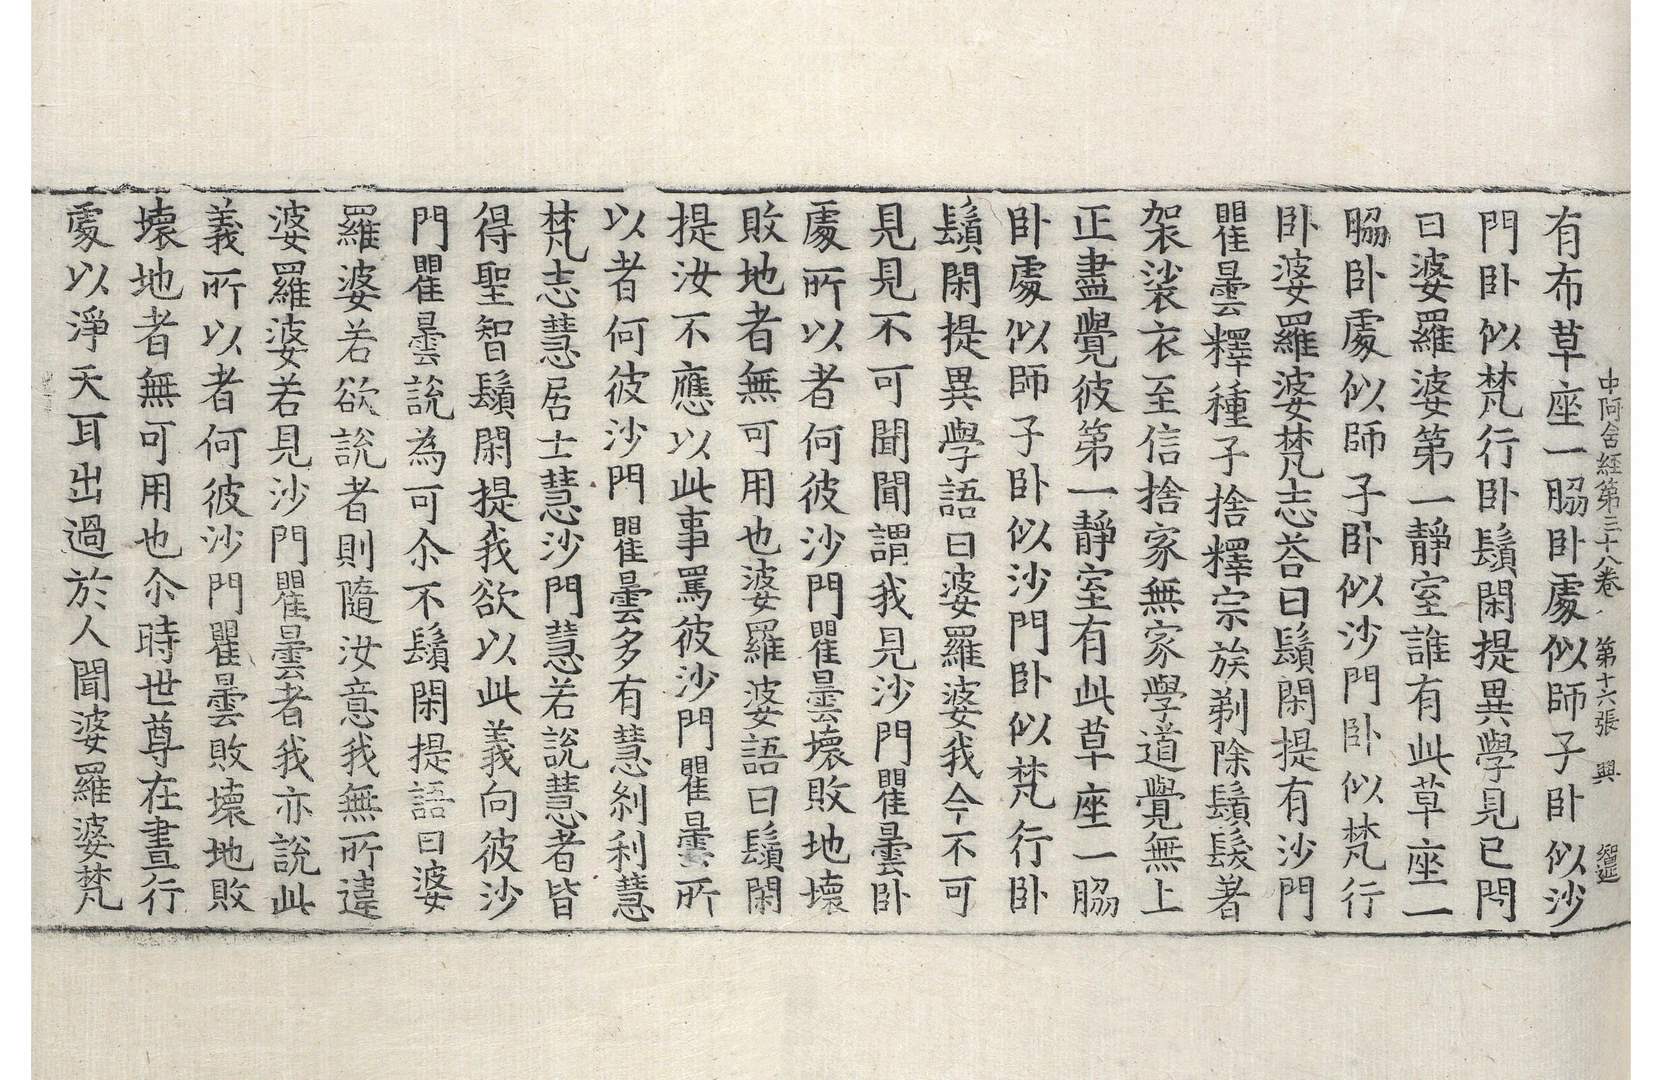 中阿含經第三十八卷 第十六張 興
有布草座一脇卧處似師子卧似沙
門卧似梵行卧鬚閑提異學見已問
曰婆羅婆第一靜室誰有此草座一
脇卧處似師子卧似沙門卧似梵行
卧婆羅婆梵志荅曰鬚閑提有沙門
瞿曇釋種子捨釋宗族剃除鬚髮著
袈裟衣至信捨家無家學道覺無上
正盡覺彼第一靜室有此草座一脇
卧處似師子卧似沙門卧似梵行卧
鬚閑提異學語曰婆羅婆我今不可
見見不可聞聞謂我見沙門瞿曇卧
處所以者何彼沙門瞿曇壞敗地壞
敗地者無可用也婆羅婆語曰鬚閑
提汝不應以此事罵彼沙門瞿曇所
以者何彼沙門瞿曇多有慧刹利慧
梵志慧居士慧沙門慧若說慧者皆
得聖智鬚閑提我欲以此義向彼沙
門瞿曇說為可尒不鬚閑提語曰婆
羅婆若欲說者則隨汝意我無所違
婆羅婆若見沙門瞿曇者我亦說此
義所以者何彼沙門瞿曇敗壞地敗
壞地者無可用也尒時世尊在晝行
處以淨天耳出過於人聞婆羅婆梵